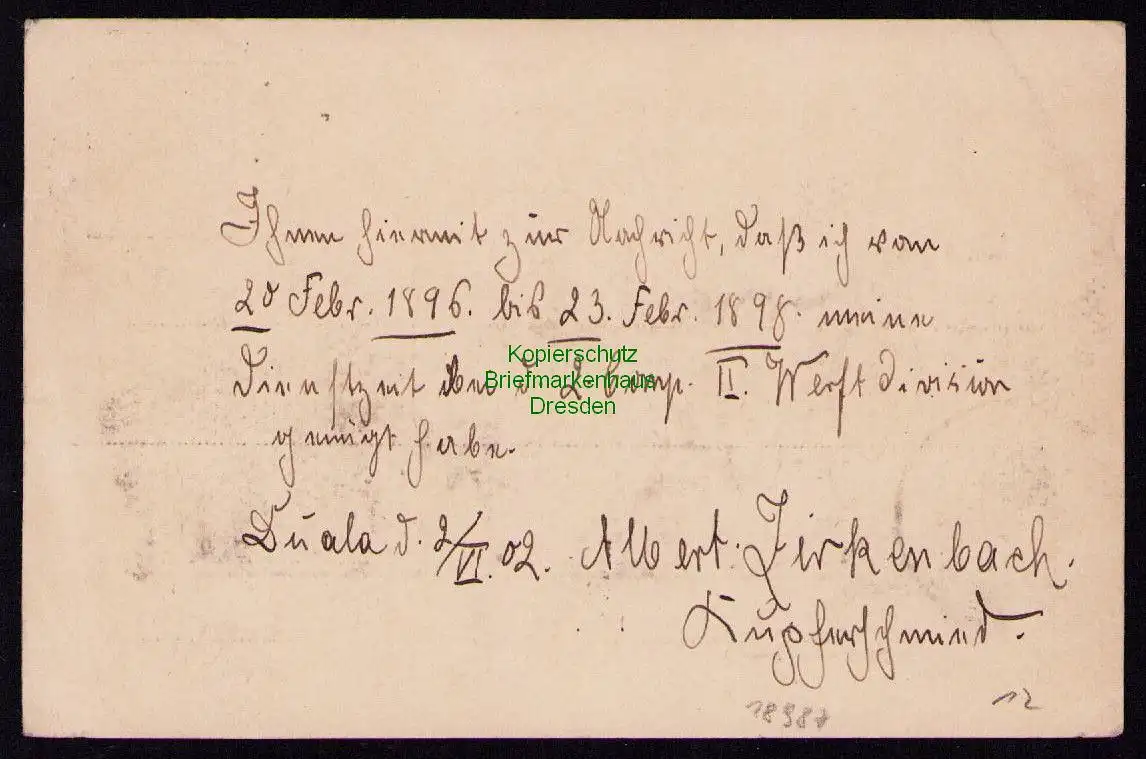 Ihnen hiermit zur Nachricht, daß ich von
20 Febr. 1896. bis 23. Febr. 1898. meine
Dienstzeit d. 2. Comp. II. Werft Division
genügt habe.
Kopierschutz
Briefmarkenhaus
Dresden
Duala d. 2/VI. 02. Albert Zirkenbach.
Kupferschmied.
18987
12